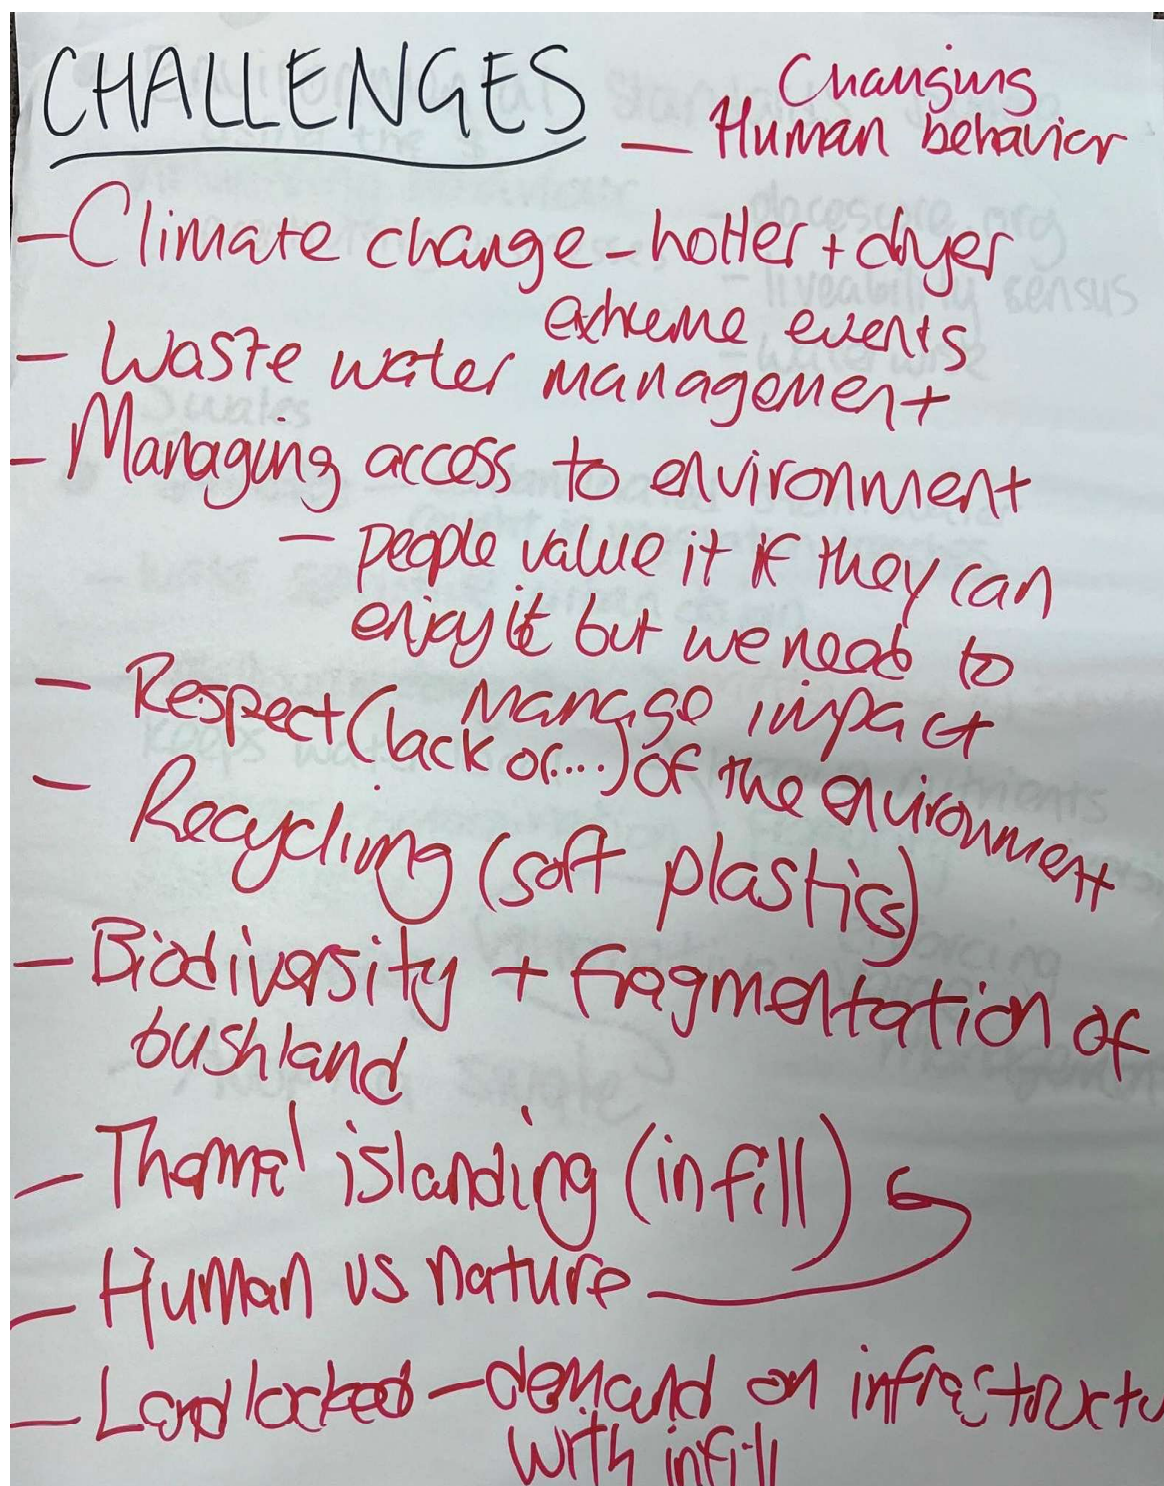 CHALLENGES
Changing
— Human behavior
- Climate change - hotter + dryer
extreme events
- Waste water management
- Managing access to environment
- people value it if they can
enjoy it but we need to
manage impact
- Respect (lack of....) of the environment
- Recycling (soft plastics)
- Biodiversity + fragmentation of
bushland
- Thermal islanding (infill)
- Human vs nature
- Land locked - demand on infrastructu
with infill